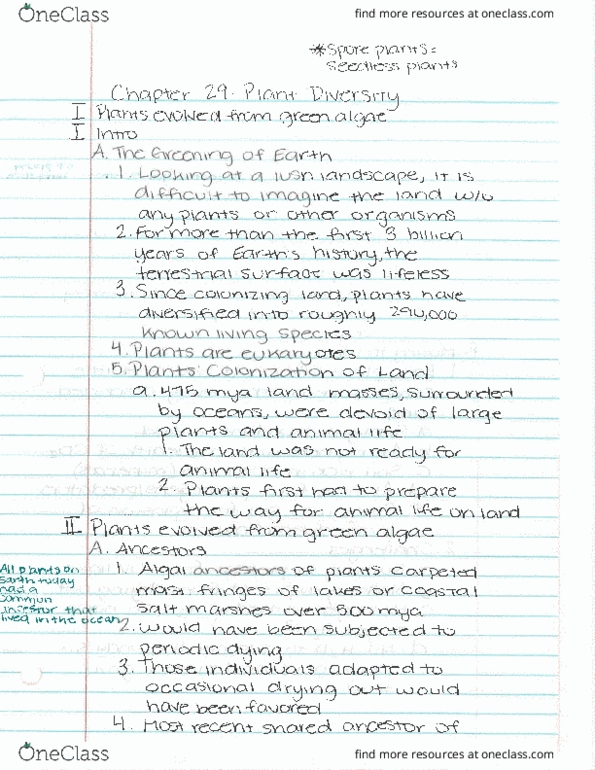 OneClass
find more resources at oneclass.com
*Spore plants =
seedless plants
Chapter 29. Plant Diversity
I Plants evolved from green algae
I Intro
A. The Greening of Earth
1. Looking at a lush landscape, it is
difficult to imagine the land w/o
any plants or other organisms
2. For more than the first 3 billion
years of Earth's history, the
terrestrial surface was lifeless
3. Since colonizing land, plants have
diversified into roughly 290,000
known living species
4. Plants are eukaryotes
5. Plants' Colonization of Land
a. 475 mya land masses, surrounded
by oceans, were devoid of large
plants and animal life
1. The land was not ready for
animal life
2. Plants first had to prepare
the way for animal life on land
II Plants evolved from green algae
A. Ancestors
1. Algal ancestors of plants carpeted
moist fringes of lakes or coastal
salt marshes over 500 mya
All plants on
Earth today
had a
common
ancestor that
lived in the ocean
2. Would have been subjected to
periodic drying
3. Those individuals adapted to
occasional drying out would
have been favored
4. Most recent shared ancestor of
OneClass
find more resources at oneclass.com